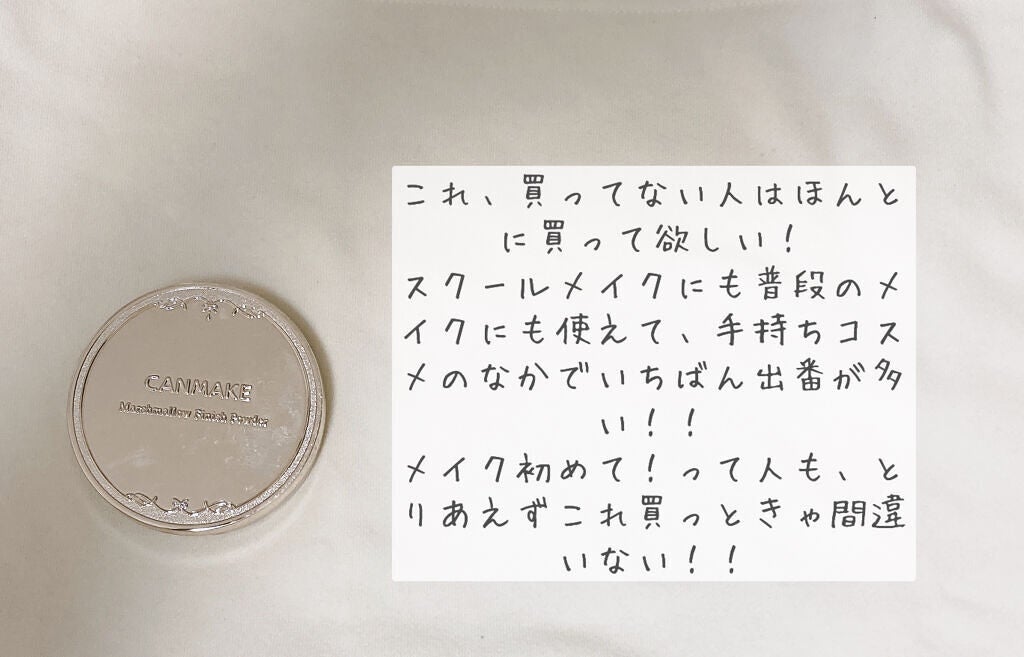 CANMAKE
Marshmallow Finish Powder
これ、買ってない人はほんと
に買って欲しい!
スクールメイクにも普段のメ
イクにも使えて、手持ちコス
メのなかでいちばん出番が多
い!!
メイク初めて!って人も、と
りあえずこれ買っときゃ間違
いない!!